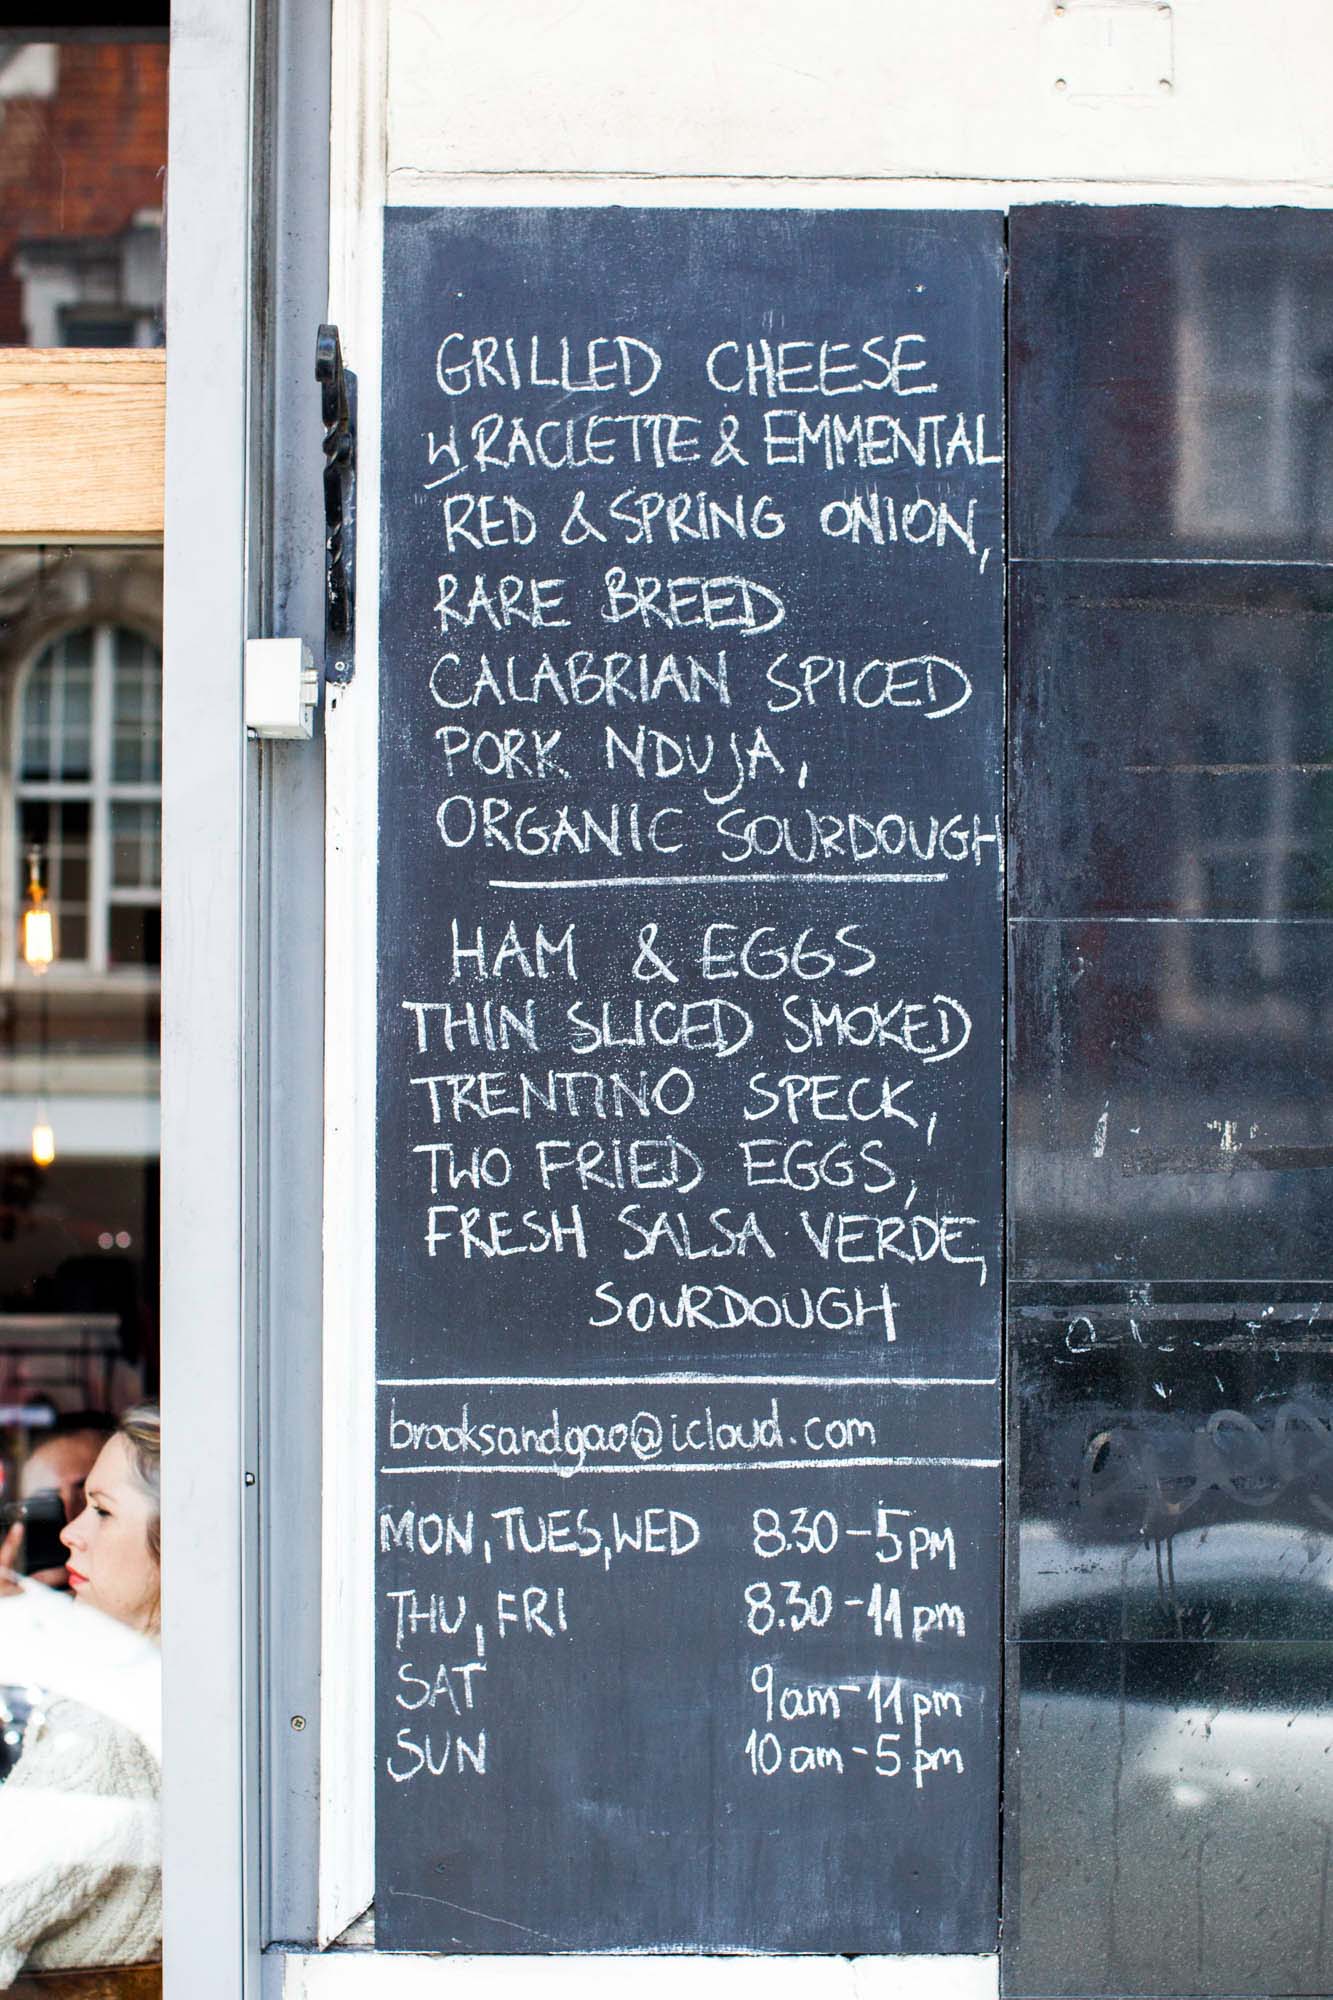 GRILLED CHEESE
W RACLETTE & EMMENTAL
RED & SPRING ONION,
RARE BREED
CALABRIAN SPICED
PORK NDUJA,
ORGANIC SOURDOUGH
HAM & EGGS
THIN SLICED SMOKED
TRENTINO SPECK,
TWO FRIED EGGS,
FRESH SALSA VERDE,
SOURDOUGH
brooksandgao@icloud.com
MON, TUES, WED 8.30-5PM
THU, FRI 8.30-11pm
SAT 9am-11pm
SUN 10am-5pm